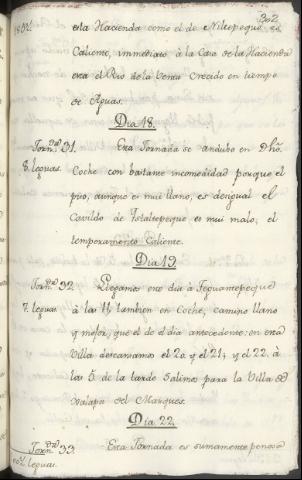 302
esta Hacienda como el de Niltepeque es
Caliente, immediato à la Casa de la Hacienda
esta el Rio de la Venta Crecido en tiempo
de Aguas.
Dia 18.
Jorn.da 31. Esta Jornada se andubo en Dho.
8. leguas. Coche con bastante incomodidad porque el
piso, aunque es mui llano, es desigual el
Cavildo de Istaltepeque es mui malo; el
temperamento Caliente.
Dia 19.
Jorn.da 32. Llegamos este dia à Teguantepeque
7. leguas à las 11, tambien en Coche, camino llano
y mejor, que el de el dia antecedente: en esta
Villa descansamos el 20, y el 21, y el 22. à
las 5 de la tarde salimos para la Villa de
Xalapa del Marques.
Dia 22.
Jorn.da 33. Esta Jornada es sumamente penosa
leguas.